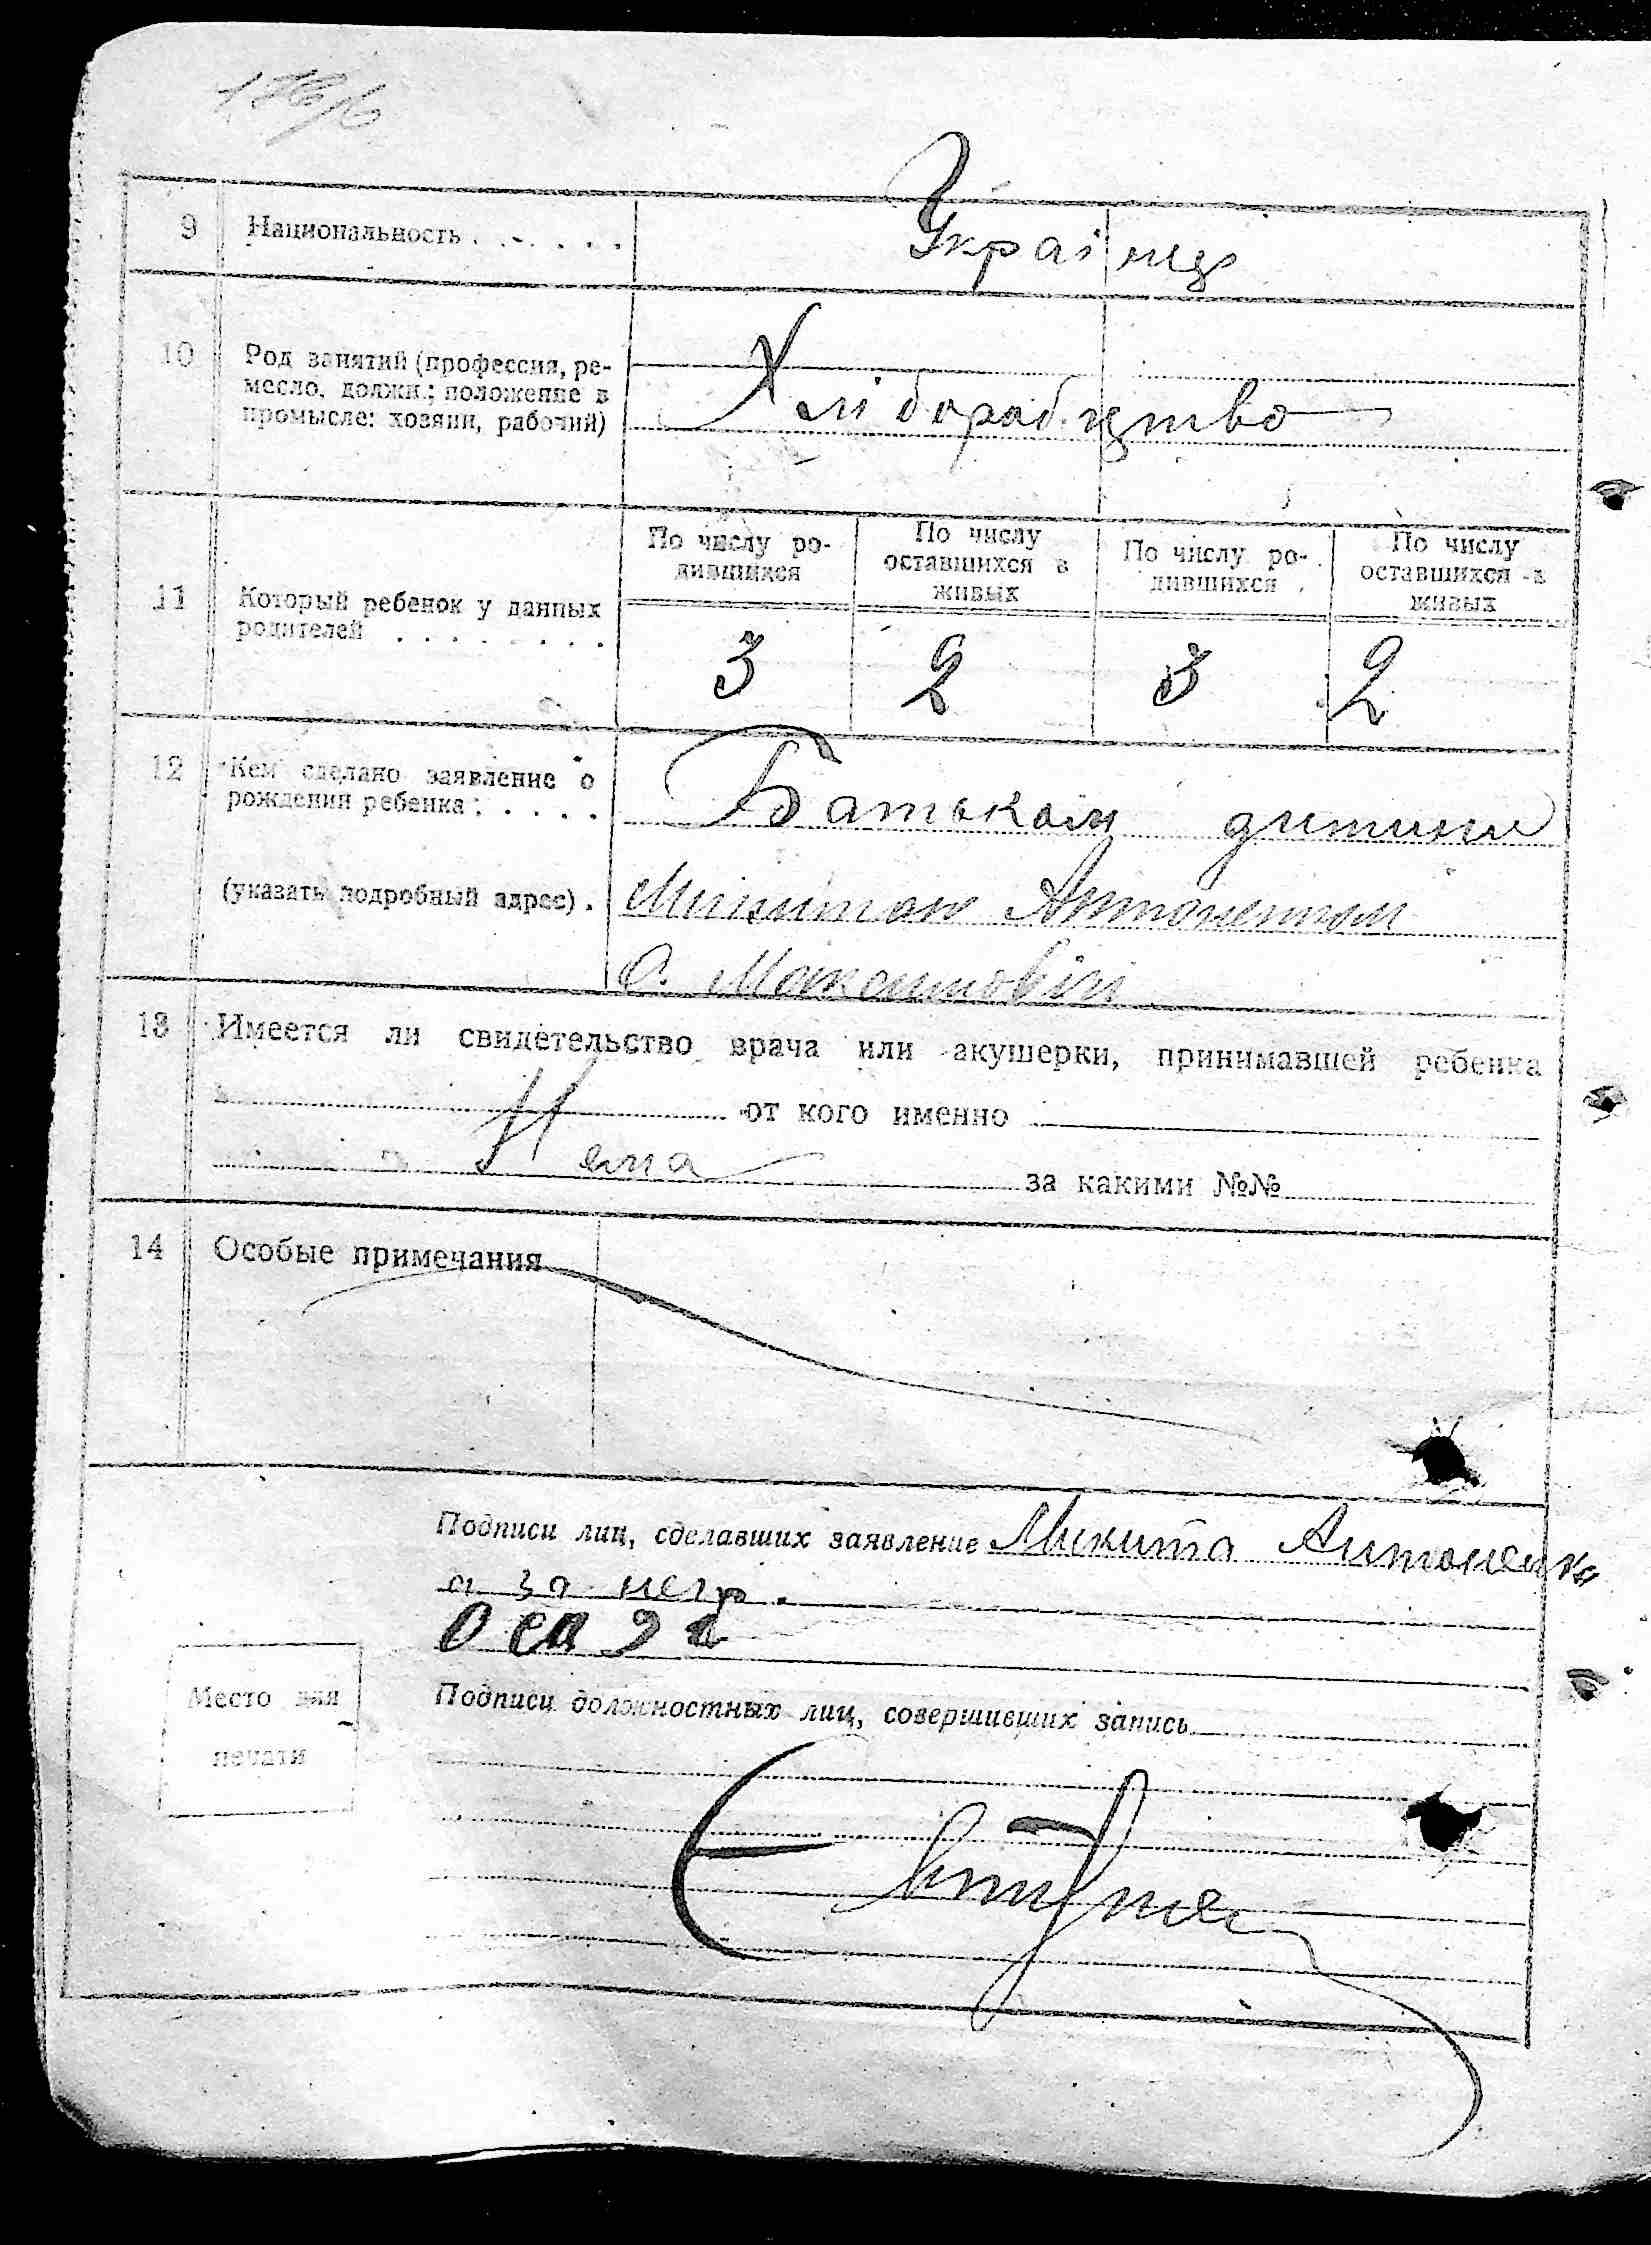 9 Национальность . . . . . .
Українці
10 Род занятий (профессия, ре-
месло, должн.; положение в
промысле: хозяин, рабочий)
Хліборобство
11 Который ребенок у данных
родителей . . . . . . . .
По числу ро-
дившихся
По числу
оставшихся в
живых
По числу ро-
дившихся
По числу
оставшихся в
живых
3 2 3 2
12 Кем сделано заявление о
рождении ребенка: . . . . .
Батьком дитини
(указать подробный адрес) .
Микитою Антоненком
С. Максимовіч
13 Имеется ли свидетельство врача или акушерки, принимавшей ребенка
от кого именно
Нема
за какими №№
14 Особые примечания
Подписи лиц, сделавших заявление Микита Антоненко
а за негр.
Место для
печати
Подписи должностных лиц, совершивших запись